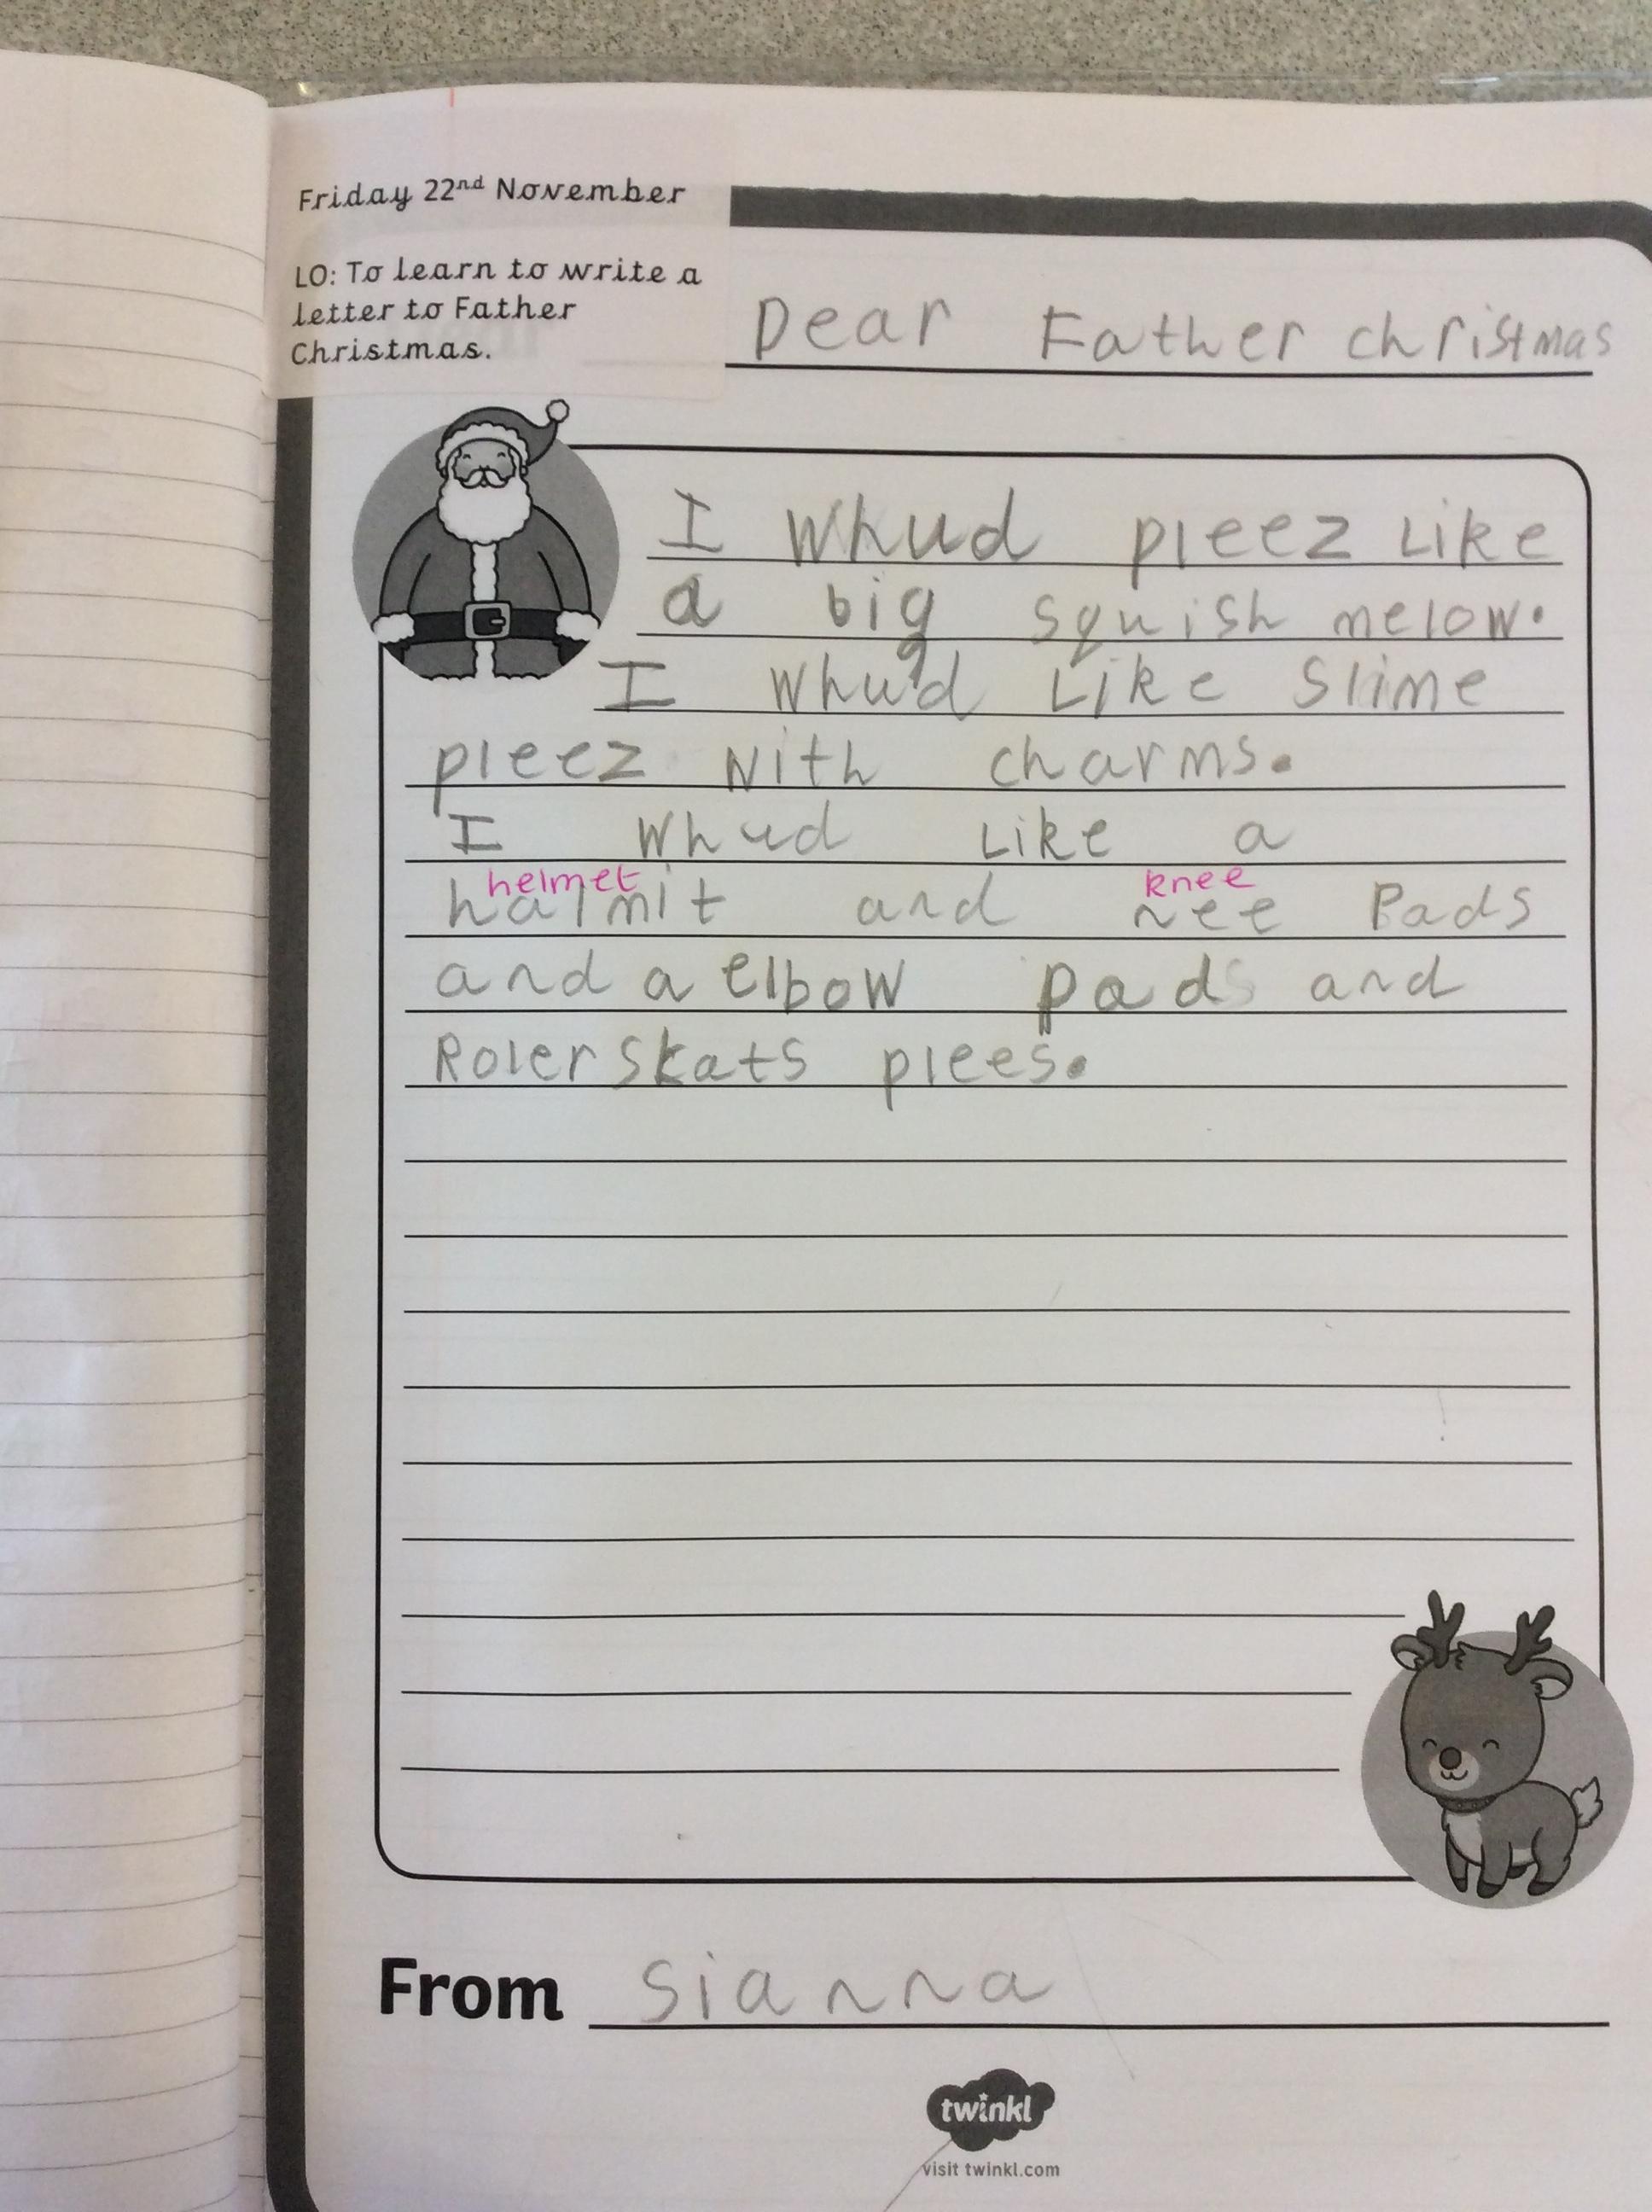 Friday 22nd November
LO: To learn to write a
letter to Father
Christmas.
Dear Father christmas
I whud pleez Like
a big squish melow.
I whud Like Slime
pleez with charms.
I whud Like a
helmet knee
halmit and nee Pads
and a elbow pads and
Roler skats plees.
From sianna
twinkl
visit twinkl.com